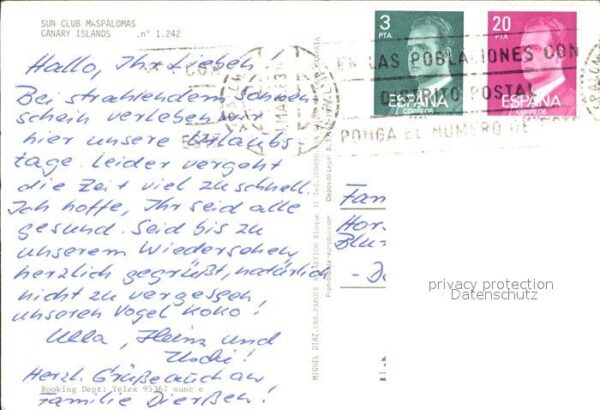 SUN CLUB MASPALOMAS
CANARY ISLANDS .nº 1.242
Hallo, Ihr Lieben!
Bei strahlendem Sonnen-
schein verleben wir
hier unsere Urlaubs-
tage. Leider vergeht
die Zeit viel zu schnell.
Ich hoffe, Ihr seid alle
gesund. Seid bis zu
unserem Wiedersehen
herzlich gegrüßt, natürlich
nicht zu vergessen
unseren Vogel Koko!
Ulla, Heinz und
Herzl. Grüße auch an
Familie Dierßen!
Booking Dept: Telex 95367 sunc e
MIGUEL DIAZ
3
PTA
ESPAÑA
CORREOS
20
PTA
ESPAÑA
CORREOS
EN LAS POBLACIONES CON
DISTRITO POSTAL
PONGA EL NUMERO DE
Fam
Hor
Blu
privacy protection
Datenschutz